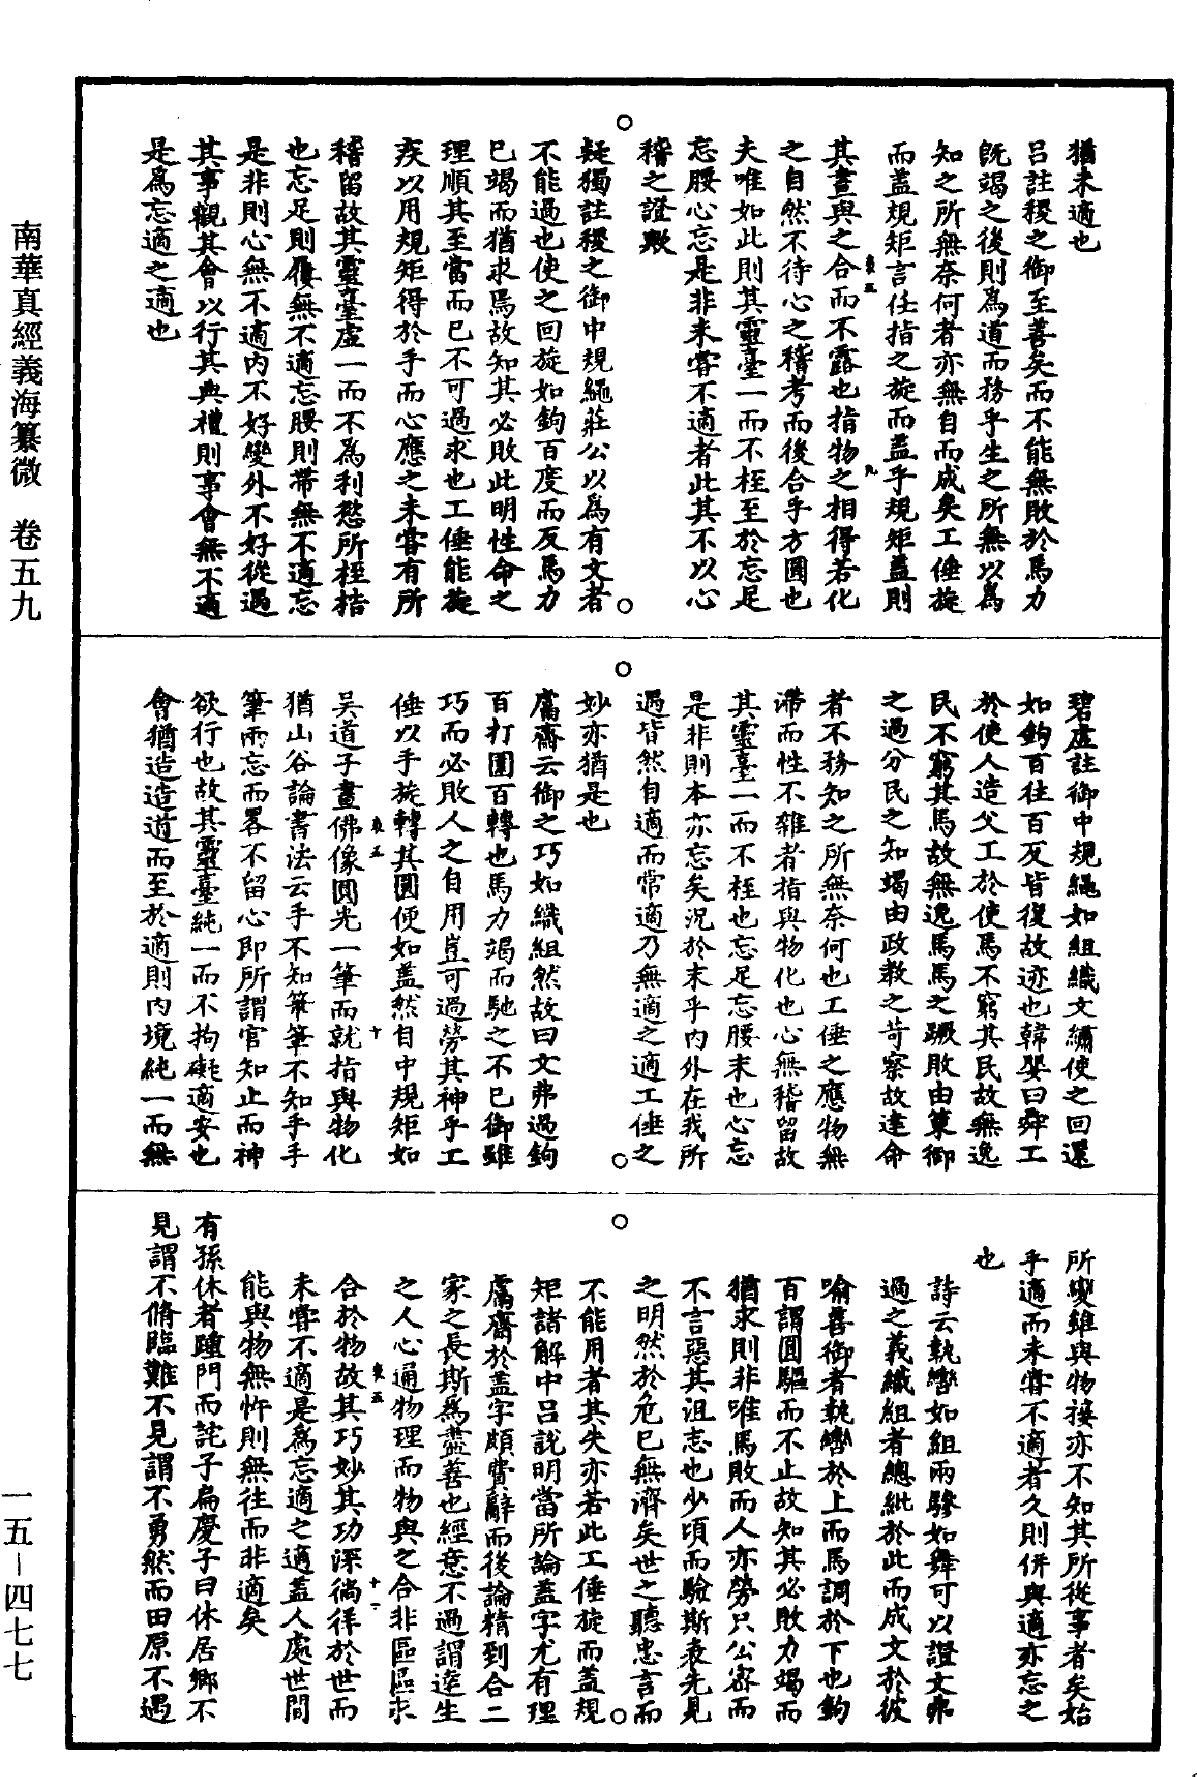 猶未適也
呂註稷之御至善矣而不能無敗於馬力
既竭之後則為道而務乎生之所無以為
知之所無奈何者亦無自而成矣工倕旋
而蓋規矩言任指之旋而蓋乎規矩蓋則
其畫與之合而不露也指物之相得若化
之自然不待心之稽考而後合乎方圓也
夫唯如此則其靈臺一而不桎至於忘足
忘腰心忘是非未嘗不適者此其不以心
稽之證歟
疑獨註稷之御中規繩莊公以為有文者
不能過也使之回旋如鉤百度而反馬力
已竭而猶求焉故知其必敗此明性命之
理順其至當而已不可過求也工倕能旋
疾以用規矩得於手而心應之未嘗有所
稽留故其靈臺虛一而不為利慾所桎梏
也忘足則屨無不適忘腰則帶無不適忘
是非則心無不適內不好變外不好從遇
其事觀其會以行其典禮則事會無不適
是為忘適之適也
碧虛註御中規繩如組織文繡使之回還
如鉤百往百反皆復故迹也韓嬰曰舜工
於使人造父工於使馬不窮其民故無逸
民不窮其馬故無逸馬馬之蹶敗由策御
之過分民之知竭由政教之苛察故達命
者不務知之所無奈何也工倕之應物無
滯而性不雜者指與物化也心無稽留故
其靈臺一而不桎也忘足忘腰末也心忘
是非則本亦忘矣況於末乎內外在我所
遇皆然自適而常適乃無適之適工倕之
妙亦猶是也
鬳齋云御之巧如織組然故曰文弗過鉤
百打圍百轉也馬力竭而馳之不已御雖
巧而必敗人之自用豈可過勞其神乎工
倕以手旋轉其圓便如蓋然自中規矩如
吳道子畫佛像圓光一筆而就指與物化
猶山谷論書法云手不知筆筆不知手手
筆兩忘而畧不留心即所謂官知止而神
欲行也故其靈臺純一而不拘礙適安也
會猶造造道而至於適則內境純一而無
所變雖與物接亦不知其所從事者矣始
乎適而未嘗不適者久則併與適亦忘之
也
詩云執轡如組兩驂如舞可以證文弗
過之義織組者總紕於此而成文於彼
喻善御者執轡於上而馬調於下也鉤
百謂圓驅而不止故知其必敗力竭而
猶求則非唯馬敗而人亦勞只公密而
不言惡其沮志也少頃而驗斯表先見
之明然於危已無濟矣世之聽忠言而
不能用者其失亦若此工倕旋而蓋規
矩諸解中呂說明當所論蓋字尤有理
鬳齋於蓋字頗費辭而後論精到合二
家之長斯為盡善也經意不過謂達生
之人心通物理而物與之合非區區求
合於物故其巧妙其功深徜徉於世而
未嘗不適是為忘適之適蓋人處世間
能與物無忤則無往而非適矣
有孫休者踵門而詫子扁慶子曰休居鄉不
見謂不脩臨難不見謂不勇然而田原不遇
南華真經義海纂微　卷五九
一五－四七七